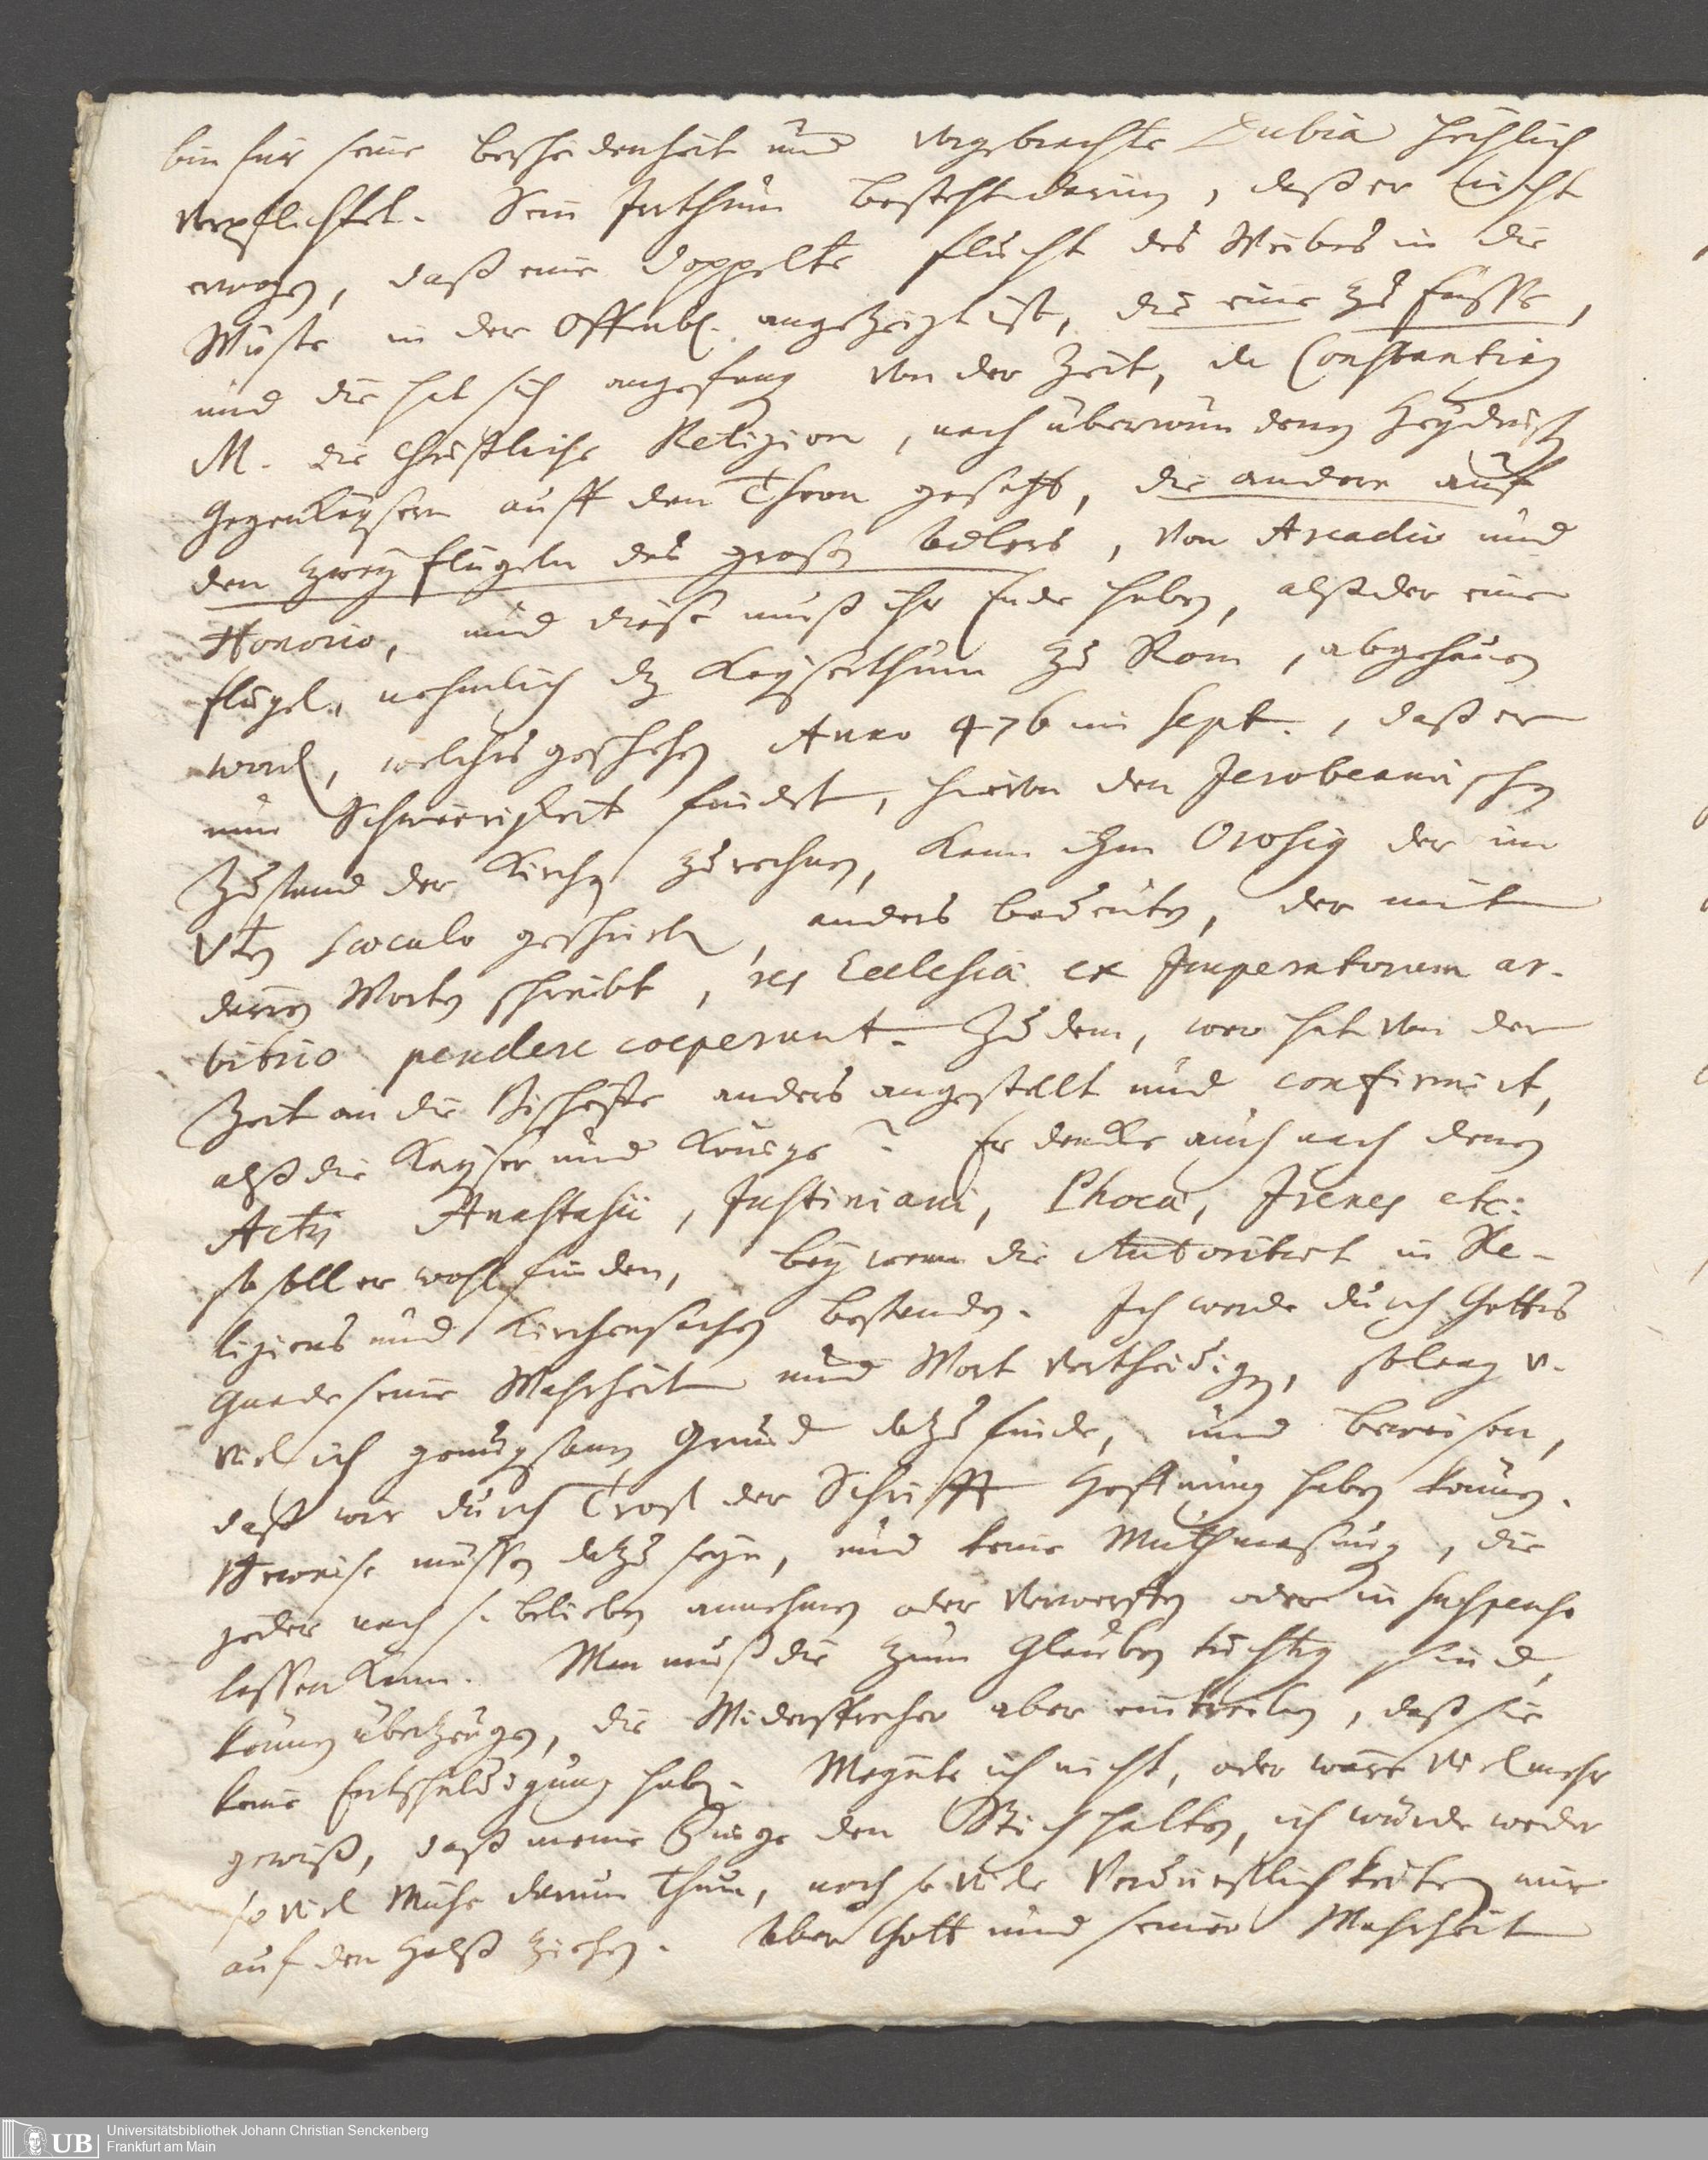 bin für seine bescheidenheit und vorgebrachte Dubia höchlich
verpflichtet. Sein Irthum bestehet darinn, daß er nicht
erwogen, daß eine doppelte flucht des Weibes in die
Wüste in der Offenb. angezeigt ist, die eine zu fusse,
und die hat sich angefangen von der Zeit, da Constantin
M. die Christliche Religion, nach überwundenen Heydnischen
GegenKaysern auff den Thron gesetzt, die andere auf
den zwey flügeln des grosen Adlers, von Arcadio und
Honorio, und diese muß ihr Ende haben, alß der eine
flügel, nehmlich dz Kayserthum zu Rom, abgehauen
word, welches geschehen Anno 476 im Sept., daß er
nun Schwierigkeit findet, hievon den Jerobeamischen
Zustand der Kirchen zu rechnen, kann ihm Orosius der im
Vten Saeculo geschrieben, anders bedeuten, der mit
dürren Worten schreibt, res Ecclesiae ex Imperatorum ar-
bitrio pendere coeperunt. Zu dem, wer hat von der
Zeit an die Bischöffe anders angestellt und confirmirt,
alß die Kayser und Könige? Er dencke auch nach denen
Actis Anastasii, Justiniani, Phocae, Irenes etc:
so soll er wohl finden, bey wem die Autoritaet in Re-
ligions und Kirchensachen bestanden. Ich werde durch Gottes
Gnade seine Wahrheit und Wort vertheidigen, solang u.
viel ich genugsamen Grund dazu finde, und beweisen,
daß wir durch Trost der Schrifft Hoffnung haben können.
Beweise müssen dazu seyn, und keine Muthmasung, die
jeder nach s. belieben annehmen oder verwerffen oder in suspenso
lassen kann. Man muß die zum Glauben tüchtig sind,
können überzeugen, die Widersprecher aber eintreiben, daß sie
keine Entschuldigung haben. Meynte ich nicht, oder wäre vielmehr
gewiß, daß meine Dinge den Stich halten, ich würde weder
so viel Mühe darum thun, noch so viele Verdrieslichkeiten mir
auf den Halß ziehen. Aber Gott und seiner Wahrheit
UB
Universitätsbibliothek Johann Christian Senckenberg
Frankfurt am Main